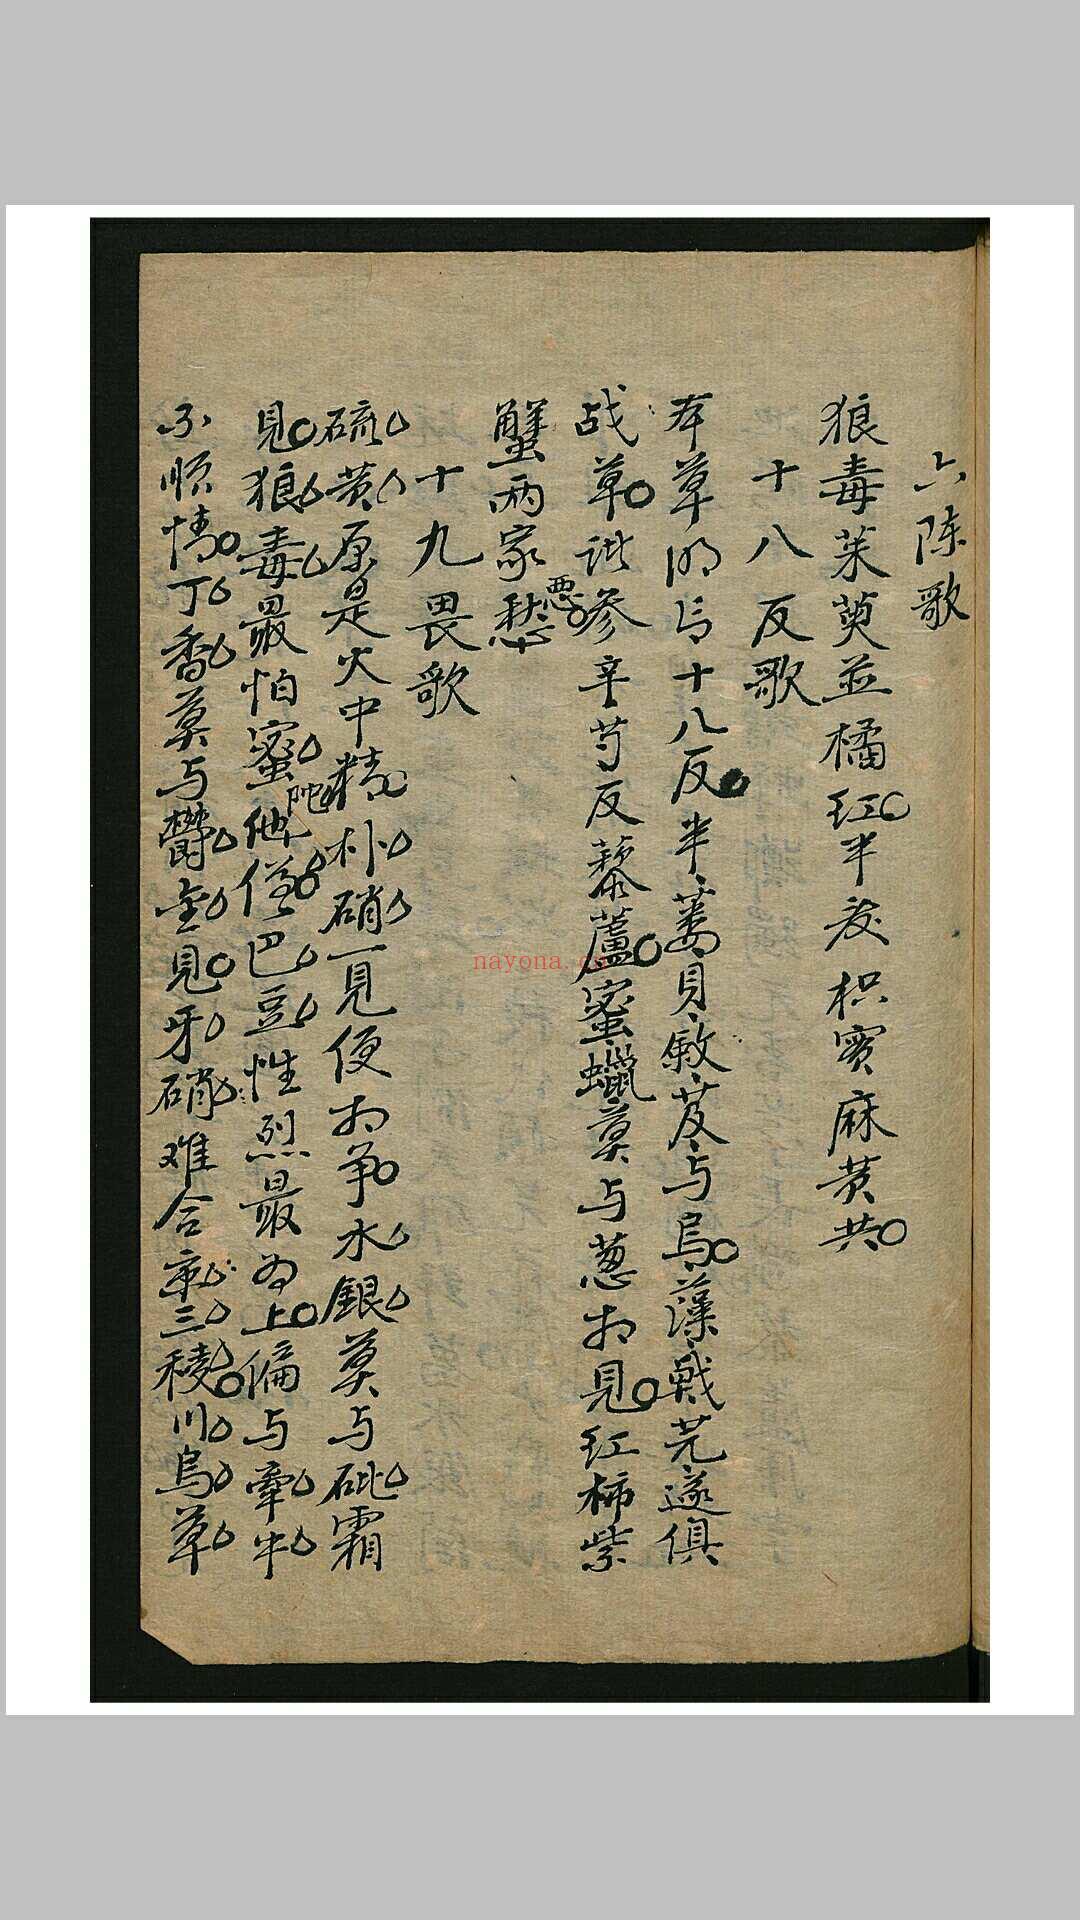 六陈歌
狼毒茱萸並橘红半夏枳實麻黄共
十八反歌
本草明言十八反半蒌貝蘞芨与烏藻戟芫遂俱
战草諸參辛芍反藜蘆蜜蠟莫与葱相見红柿紫
蟹兩家愁
惡
十九畏歌
硫黄原是火中精朴硝一見便相争水銀莫与砒霜
見狼毒最怕蜜他僧巴豆性烈最为上偏与牽牛
陀
不順情丁香莫与鬱金見牙硝难合京三稜川烏草
nayona.cn